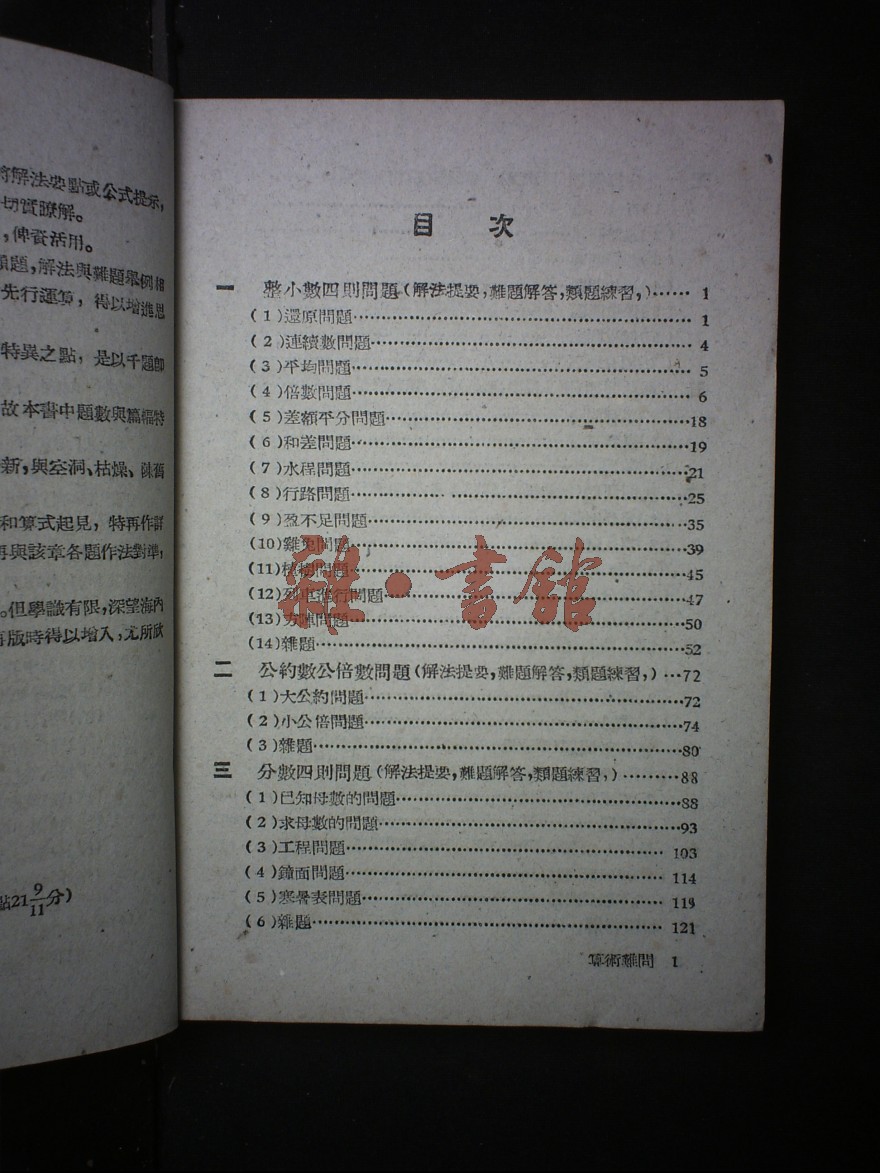 將解法要點或公式提示,
切實瞭解。
,俾資活用。
題,解法與難題舉例相
先行運算,得以增進思
特異之點,是以千題即
故本書中題數與篇幅特
新,與空洞、枯燥、陳舊
和算式起見,特再作詳
再與該章各題作法對準,
。但學識有限,深望海內
再版時得以增入,尤所欣
點21 9/11分)
目 次
一 整小數四則問題(解法提要,難題解答,類題練習,)…… 1
(1)還原問題…… 1
(2)連續數問題…… 4
(3)平均問題…… 5
(4)倍數問題…… 6
(5)差額平分問題……18
(6)和差問題……19
(7)水程問題……21
(8)行路問題……25
(9)盈不足問題……35
(10)雞兔問題……39
(11)植樹問題……45
(12)列車進行問題……47
(13)方陣問題……50
(14)雜題……52
二 公約數公倍數問題(解法提要,難題解答,類題練習,)…72
(1)大公約問題……72
(2)小公倍問題……74
(3)雜題……80
三 分數四則問題(解法提要,難題解答,類題練習,)……88
(1)已知母數的問題……88
(2)求母數的問題……93
(3)工程問題…… 103
(4)鐘面問題…… 114
(5)寒暑表問題…… 119
(6)雜題…… 121
算術難問 1
雜·書館